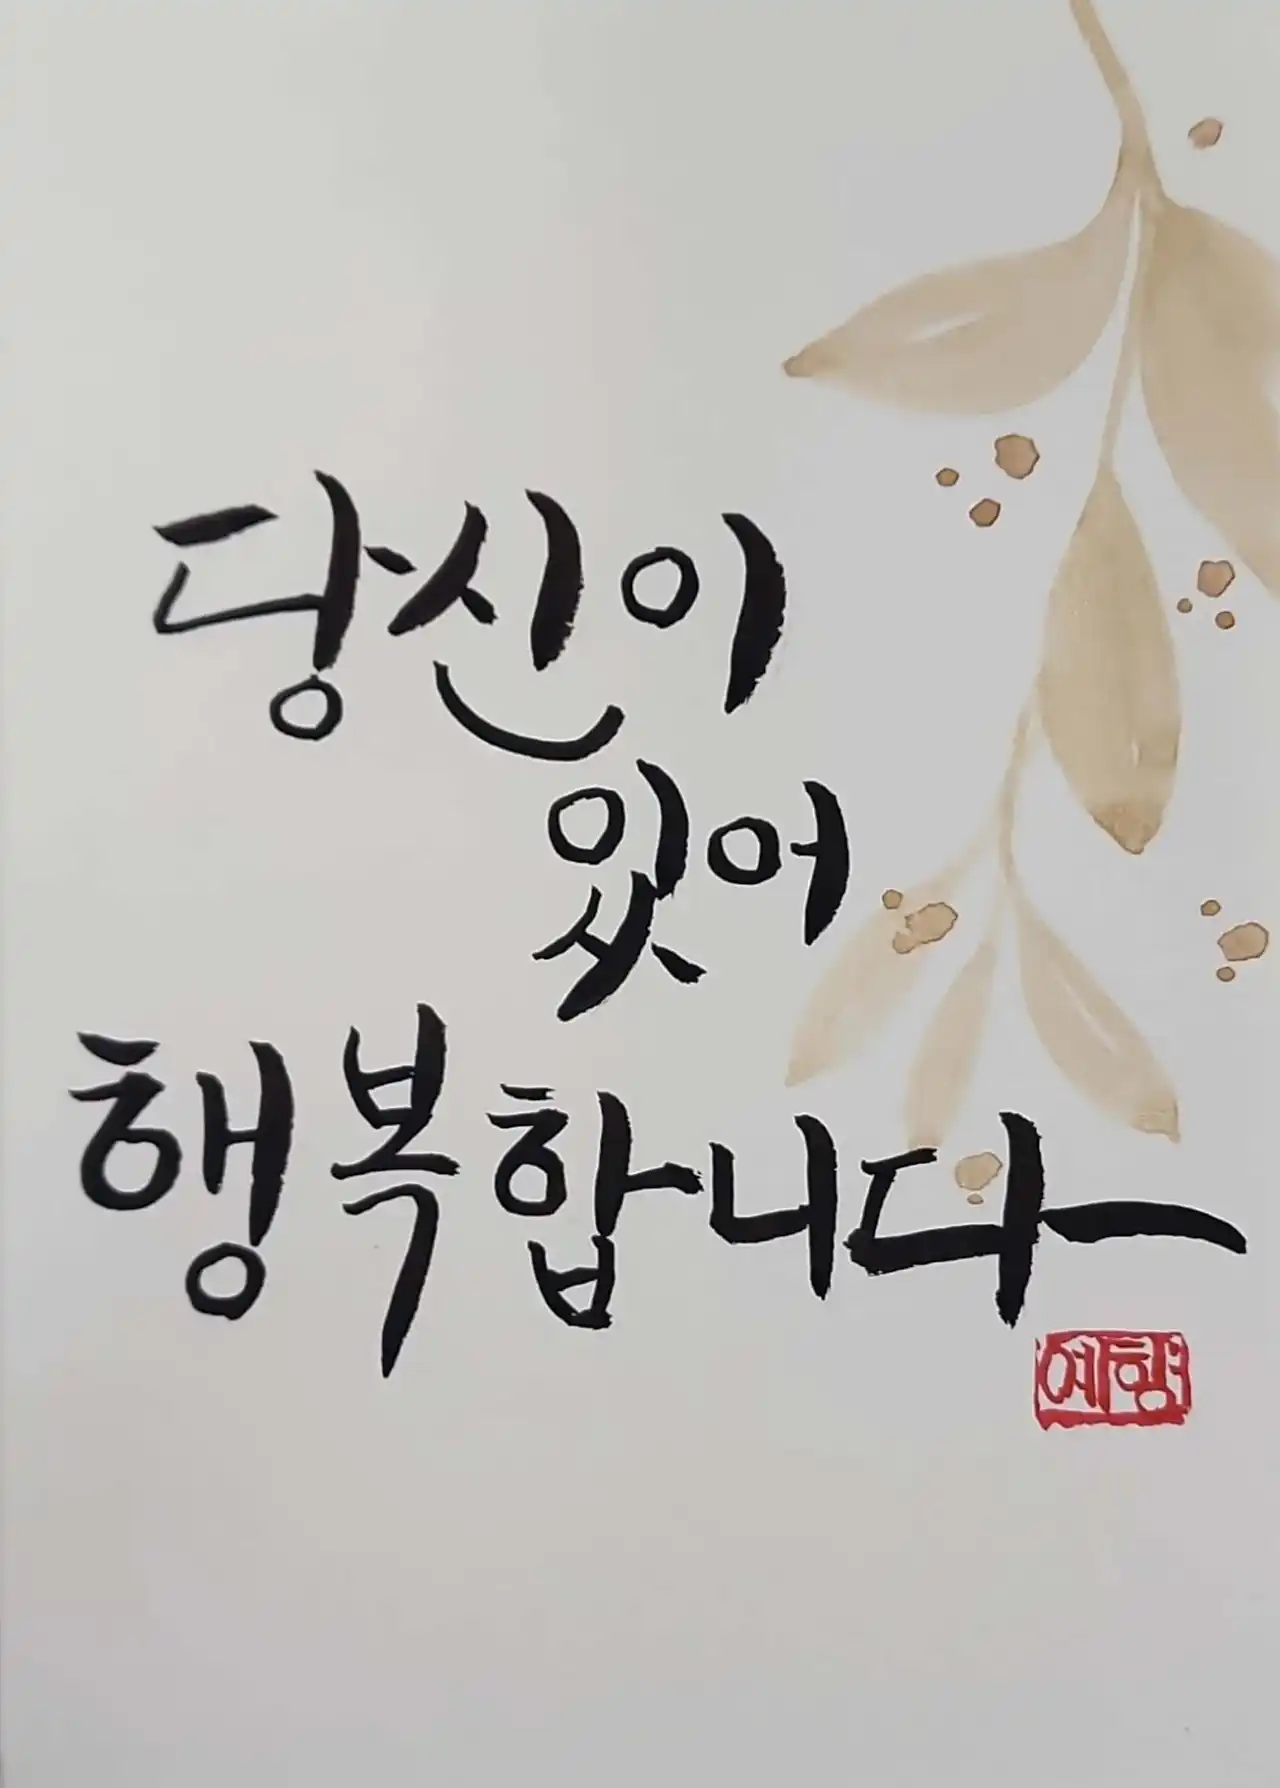 당신이
있어
행복합니다
여향